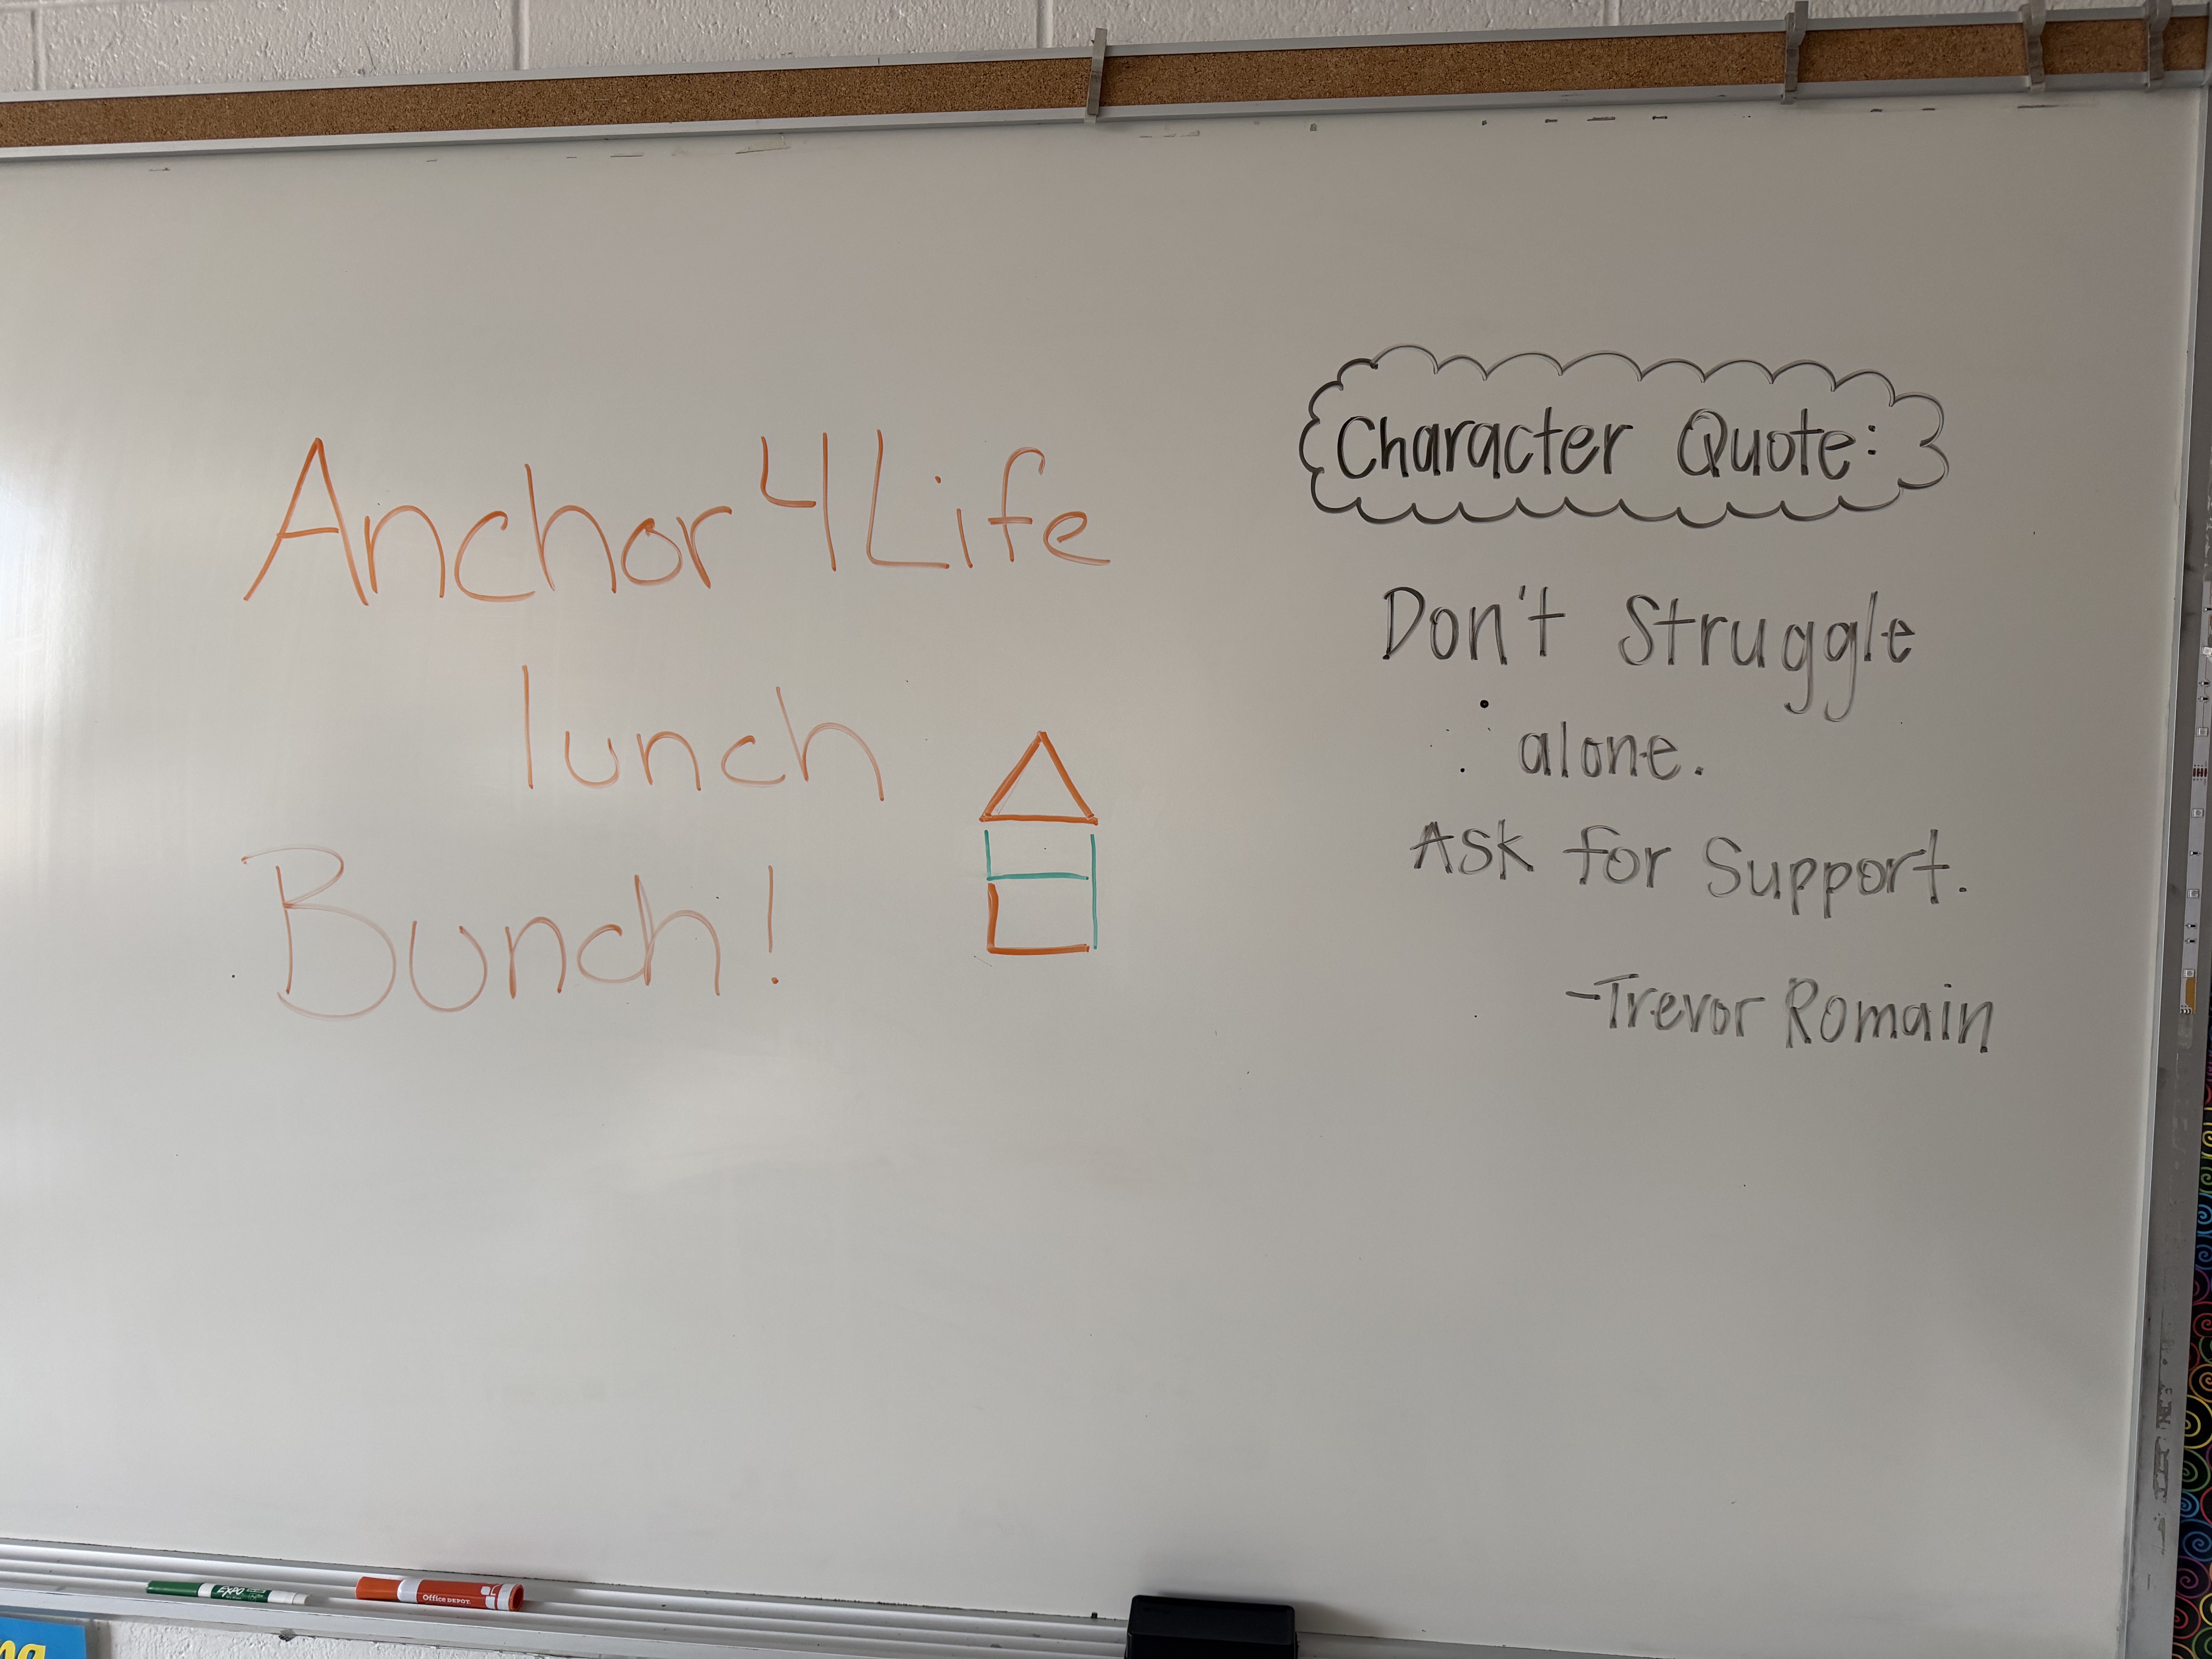 Anchor 4 Life
lunch
Bunch!
Character Quote:
Don't Struggle
alone.
Ask for Support.
-Trevor Romain
EXPO
Office DEPOT